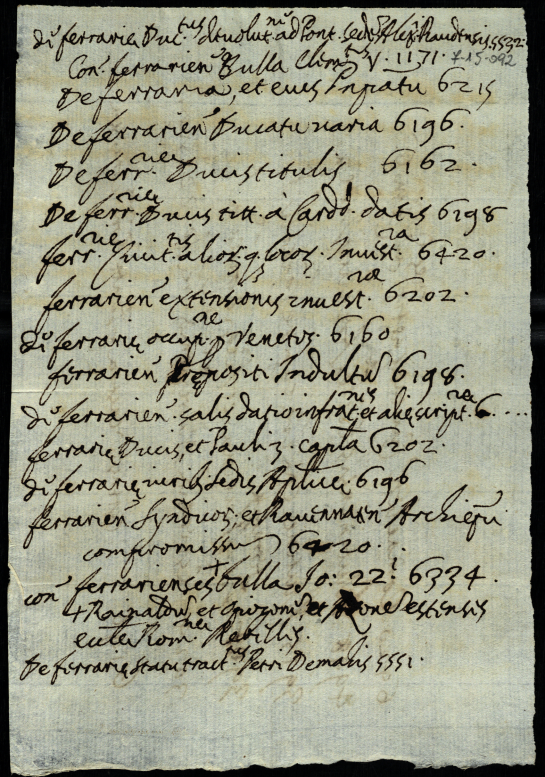 di ferrarie Duc.tus deuolut.nẽ ad Pont. sedes Alex. Raudensis 5532.
Con. ferrarien̄ Bulla Clem.tis V. 1171. 7-15-092
De ferraria, et eius Pnpiatu 6215
De ferrarien̄ Ducatu uaria 6196.
De ferr.rien Ducis titulis 6162.
De ferr.rien Ducis titt. à Cardd. datis 6198
ferr.rie Ciuit.tis alior. q. locor. Inuest.ra 6420.
ferrarien̄ extensionis inuest.ræ 6202.
di ferrarie occup.ne p Venetos. 6160
ferrarien̄ Propositi Indultū 6198.
di ferrarien̄. salis datio infrãt.nis et alie script.re 6....
ferrarie Ducis, et Pauli 3. capta 6202.
di ferrarie iurib. Sedis Aplice. 6196
ferrarien̄ Syndicos, et Rauennaten̄ Archiepũ
compromissū 6420.
con ferrarienses + bulla Jo: 22.i 6334.
+ Rainaldū, et Opizonē, et Azonē estensis
eccle Rom.nei Rebelles.
De ferrarie statu tract.us Petri Demalis 5551.